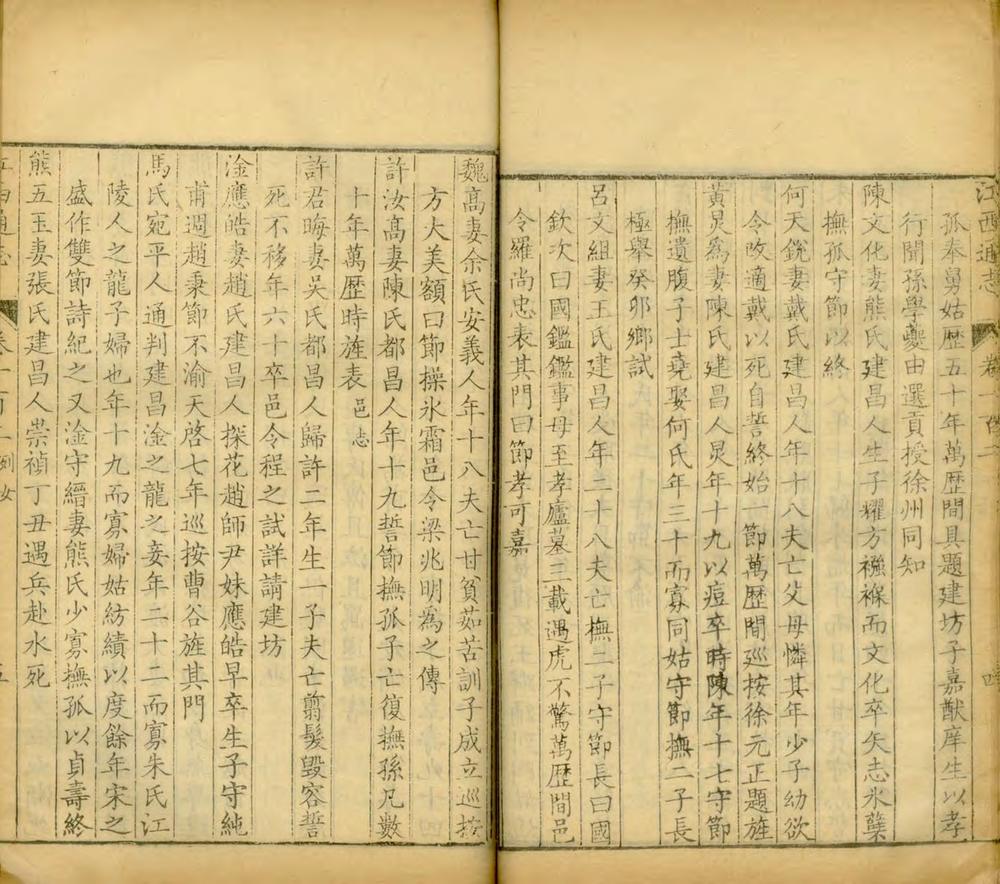 江西通志 卷一百
孤奉舅姑歴五十年萬歴間具題建坊子嘉猷庠生以孝
行聞孫學夔由選貢授徐州同知
陳文化妻熊氏建昌人生子耀方襁褓而文化卒矢志氷蘗
撫孤守節以終
何天銳妻戴氏建昌人年十八夫亡父母憐其年少子幼欲
令改適戴以死自誓終始一節萬歴間巡按徐元正題旌
黃炅爲妻陳氏建昌人炅年十九以痘卒時陳年十七守節
撫遺腹子士堯娶何氏年三十而寡同姑守節撫二子長
極舉癸卯鄉試
呂文組妻王氏建昌人年二十八夫亡撫二子守節長曰國
欽次曰國鑑鑑事母至孝廬墓三載遇虎不驚萬歴間邑
令羅尚忠表其門曰節孝可嘉
魏髙妻余氏安義人年十八夫亡甘貧茹苦訓子成立巡按
方大美額曰節操氷霜邑令梁兆明爲之傳
許汝髙妻陳氏都昌人年十九誓節撫孤子亡復撫孫凡數
十年萬歴時旌表 邑志
許君晦妻吳氏都昌人歸許二年生一子夫亡翦髮毀容誓
死不移年六十卒邑令程之試詳請建坊
淦應皓妻趙氏建昌人探花趙師尹妹應皓早卒生子守純
甫週趙秉節不渝天啓七年巡按曹谷旌其門
馬氏宛平人通判建昌淦之龍之妾年二十二而寡朱氏江
陵人之龍子婦也年十九而寡婦姑紡績以度餘年宋之
盛作雙節詩紀之又淦守縉妻熊氏少寡撫孤以貞壽終
熊五玉妻張氏建昌人崇禎丁丑遇兵赴水死
江西通志 卷一百 列女 五